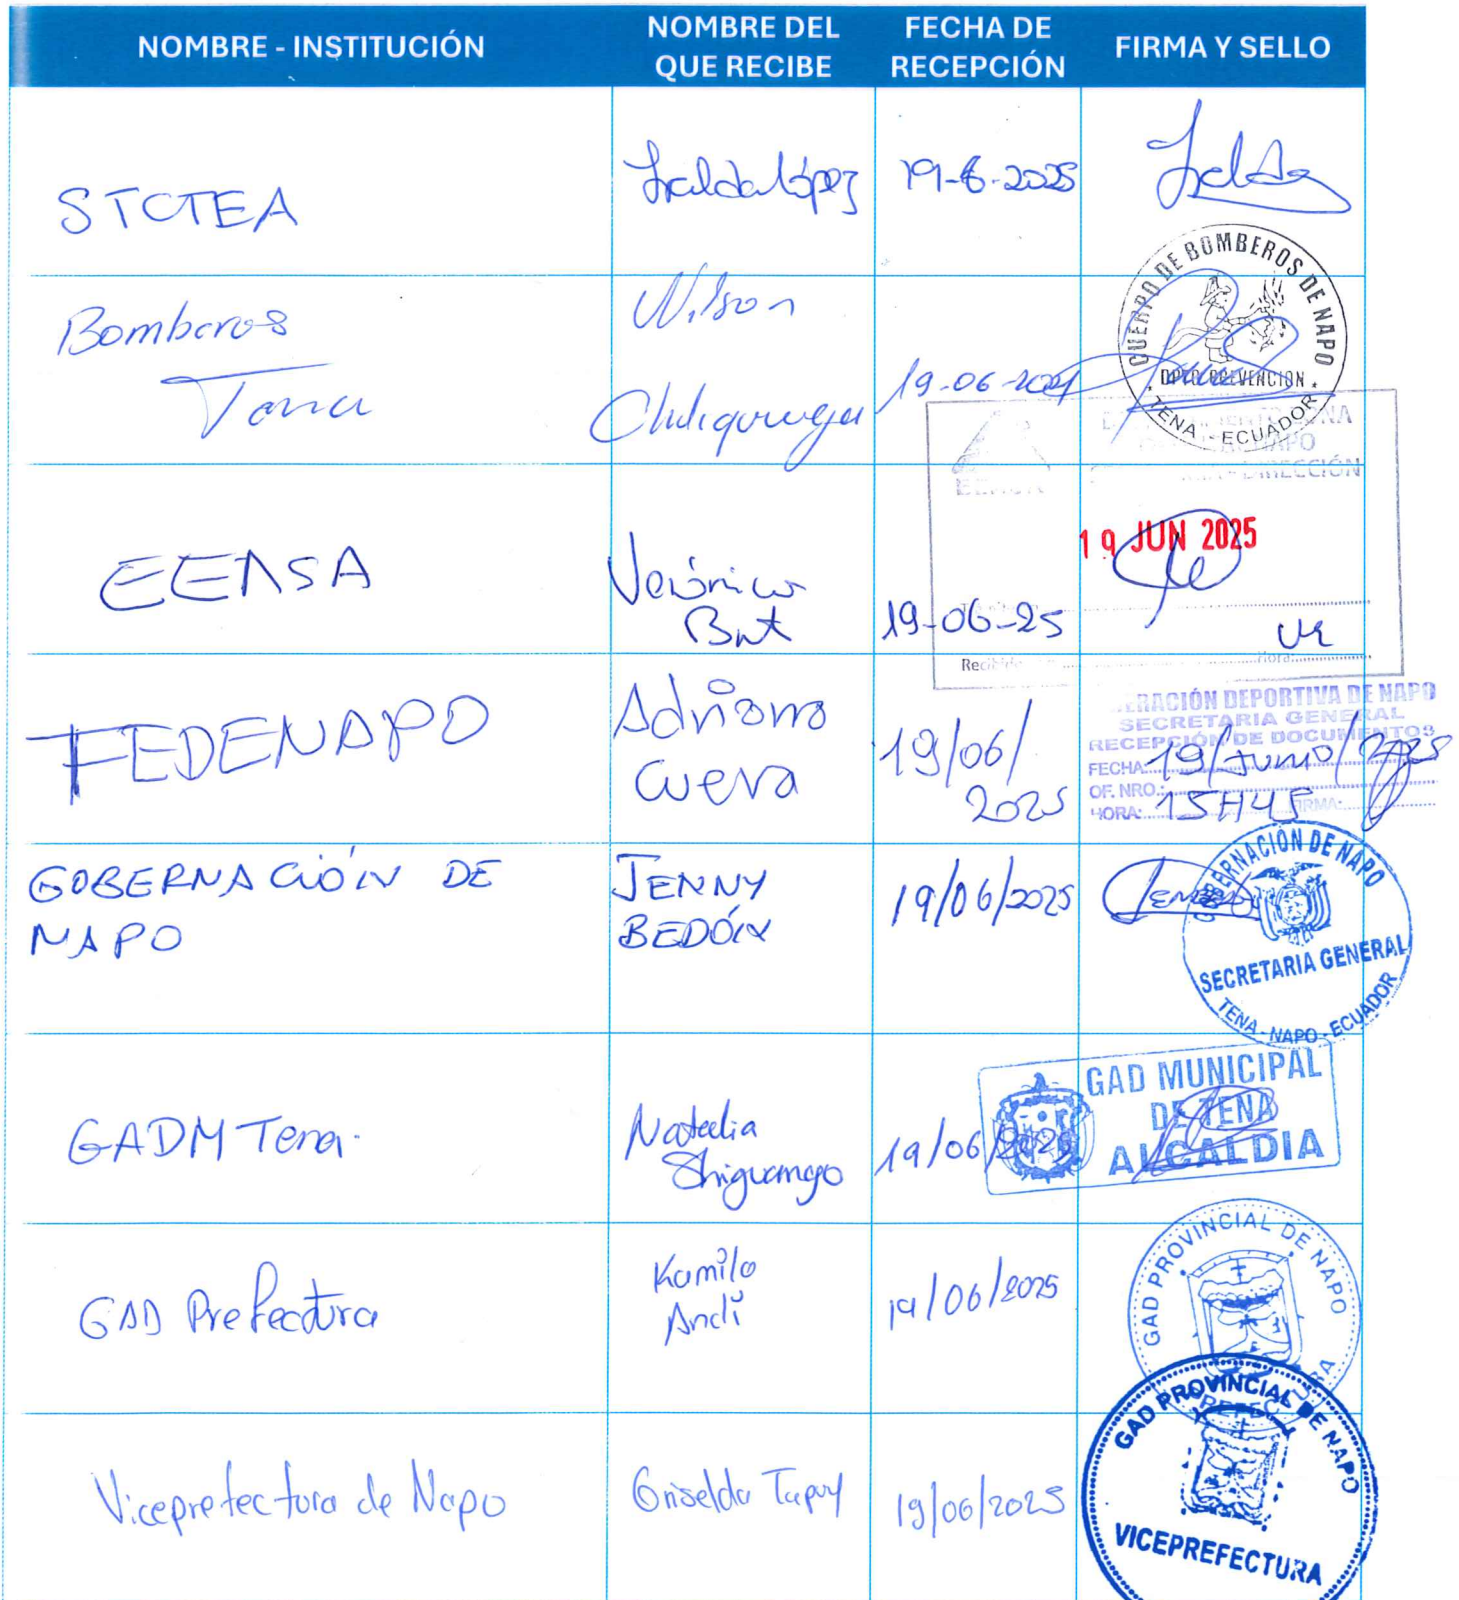 NOMBRE - INSTITUCIÓN
NOMBRE DEL
QUE RECIBE
FECHA DE
RECEPCIÓN
FIRMA Y SELLO
STCTEA
López
19-6-2025
CUERPO DE BOMBEROS DE NAPO
DPTO. PREVENCION
TENA - ECUADOR
Bomberos
Tena
Wilson
Chiliquinga
19-06-
NAPO
DIRECCIÓN
EENSA
Verónica
19-06-25
19 JUN 2025
Hora:
FEDENAPO
Adriana
Cueva
19/06/
2025
DEPORTIVA DE NAPO
SECRETARIA GENERAL
RECEPCIÓN DE DOCUMENTOS
FECHA: 19/Junio/2025
OF. NRO.:
HORA: 15H45 FIRMA:
GOBERNACIÓN DE
NAPO
JENNY
BEDÓN
19/06/2025
GOBERNACIÓN DE NAPO
SECRETARIA GENERAL
TENA - NAPO - ECUADOR
GADM Tena.
Natalia
Shiguango
19/06/2025
GAD MUNICIPAL
DE TENA
ALCALDIA
GAD Prefectura
Kamilo
Andi
19/06/2025
GAD PROVINCIAL DE NAPO
Viceprefectura de Napo
Griselda Tapuy
19/06/2025
GAD PROVINCIAL DE NAPO
VICEPREFECTURA